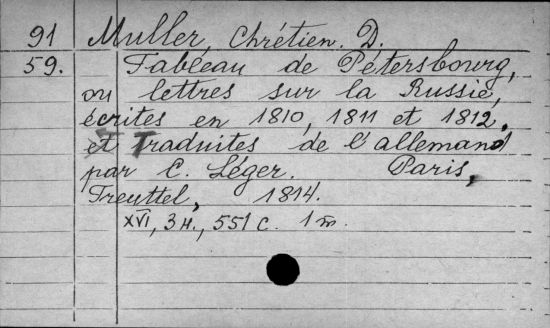 91 Muller, Chrétien. D.
59. Tableau de Pétersbourg,
ou lettres sur la Russie,
écrites en 1810, 1811 et 1812,
et Traduites de l'allemand
par C. Léger. Paris,
Treuttel, 1814.
XVI, 3 н., 551 с. 1 т.